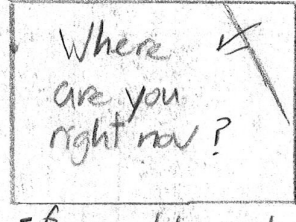 Where
are you
right now?